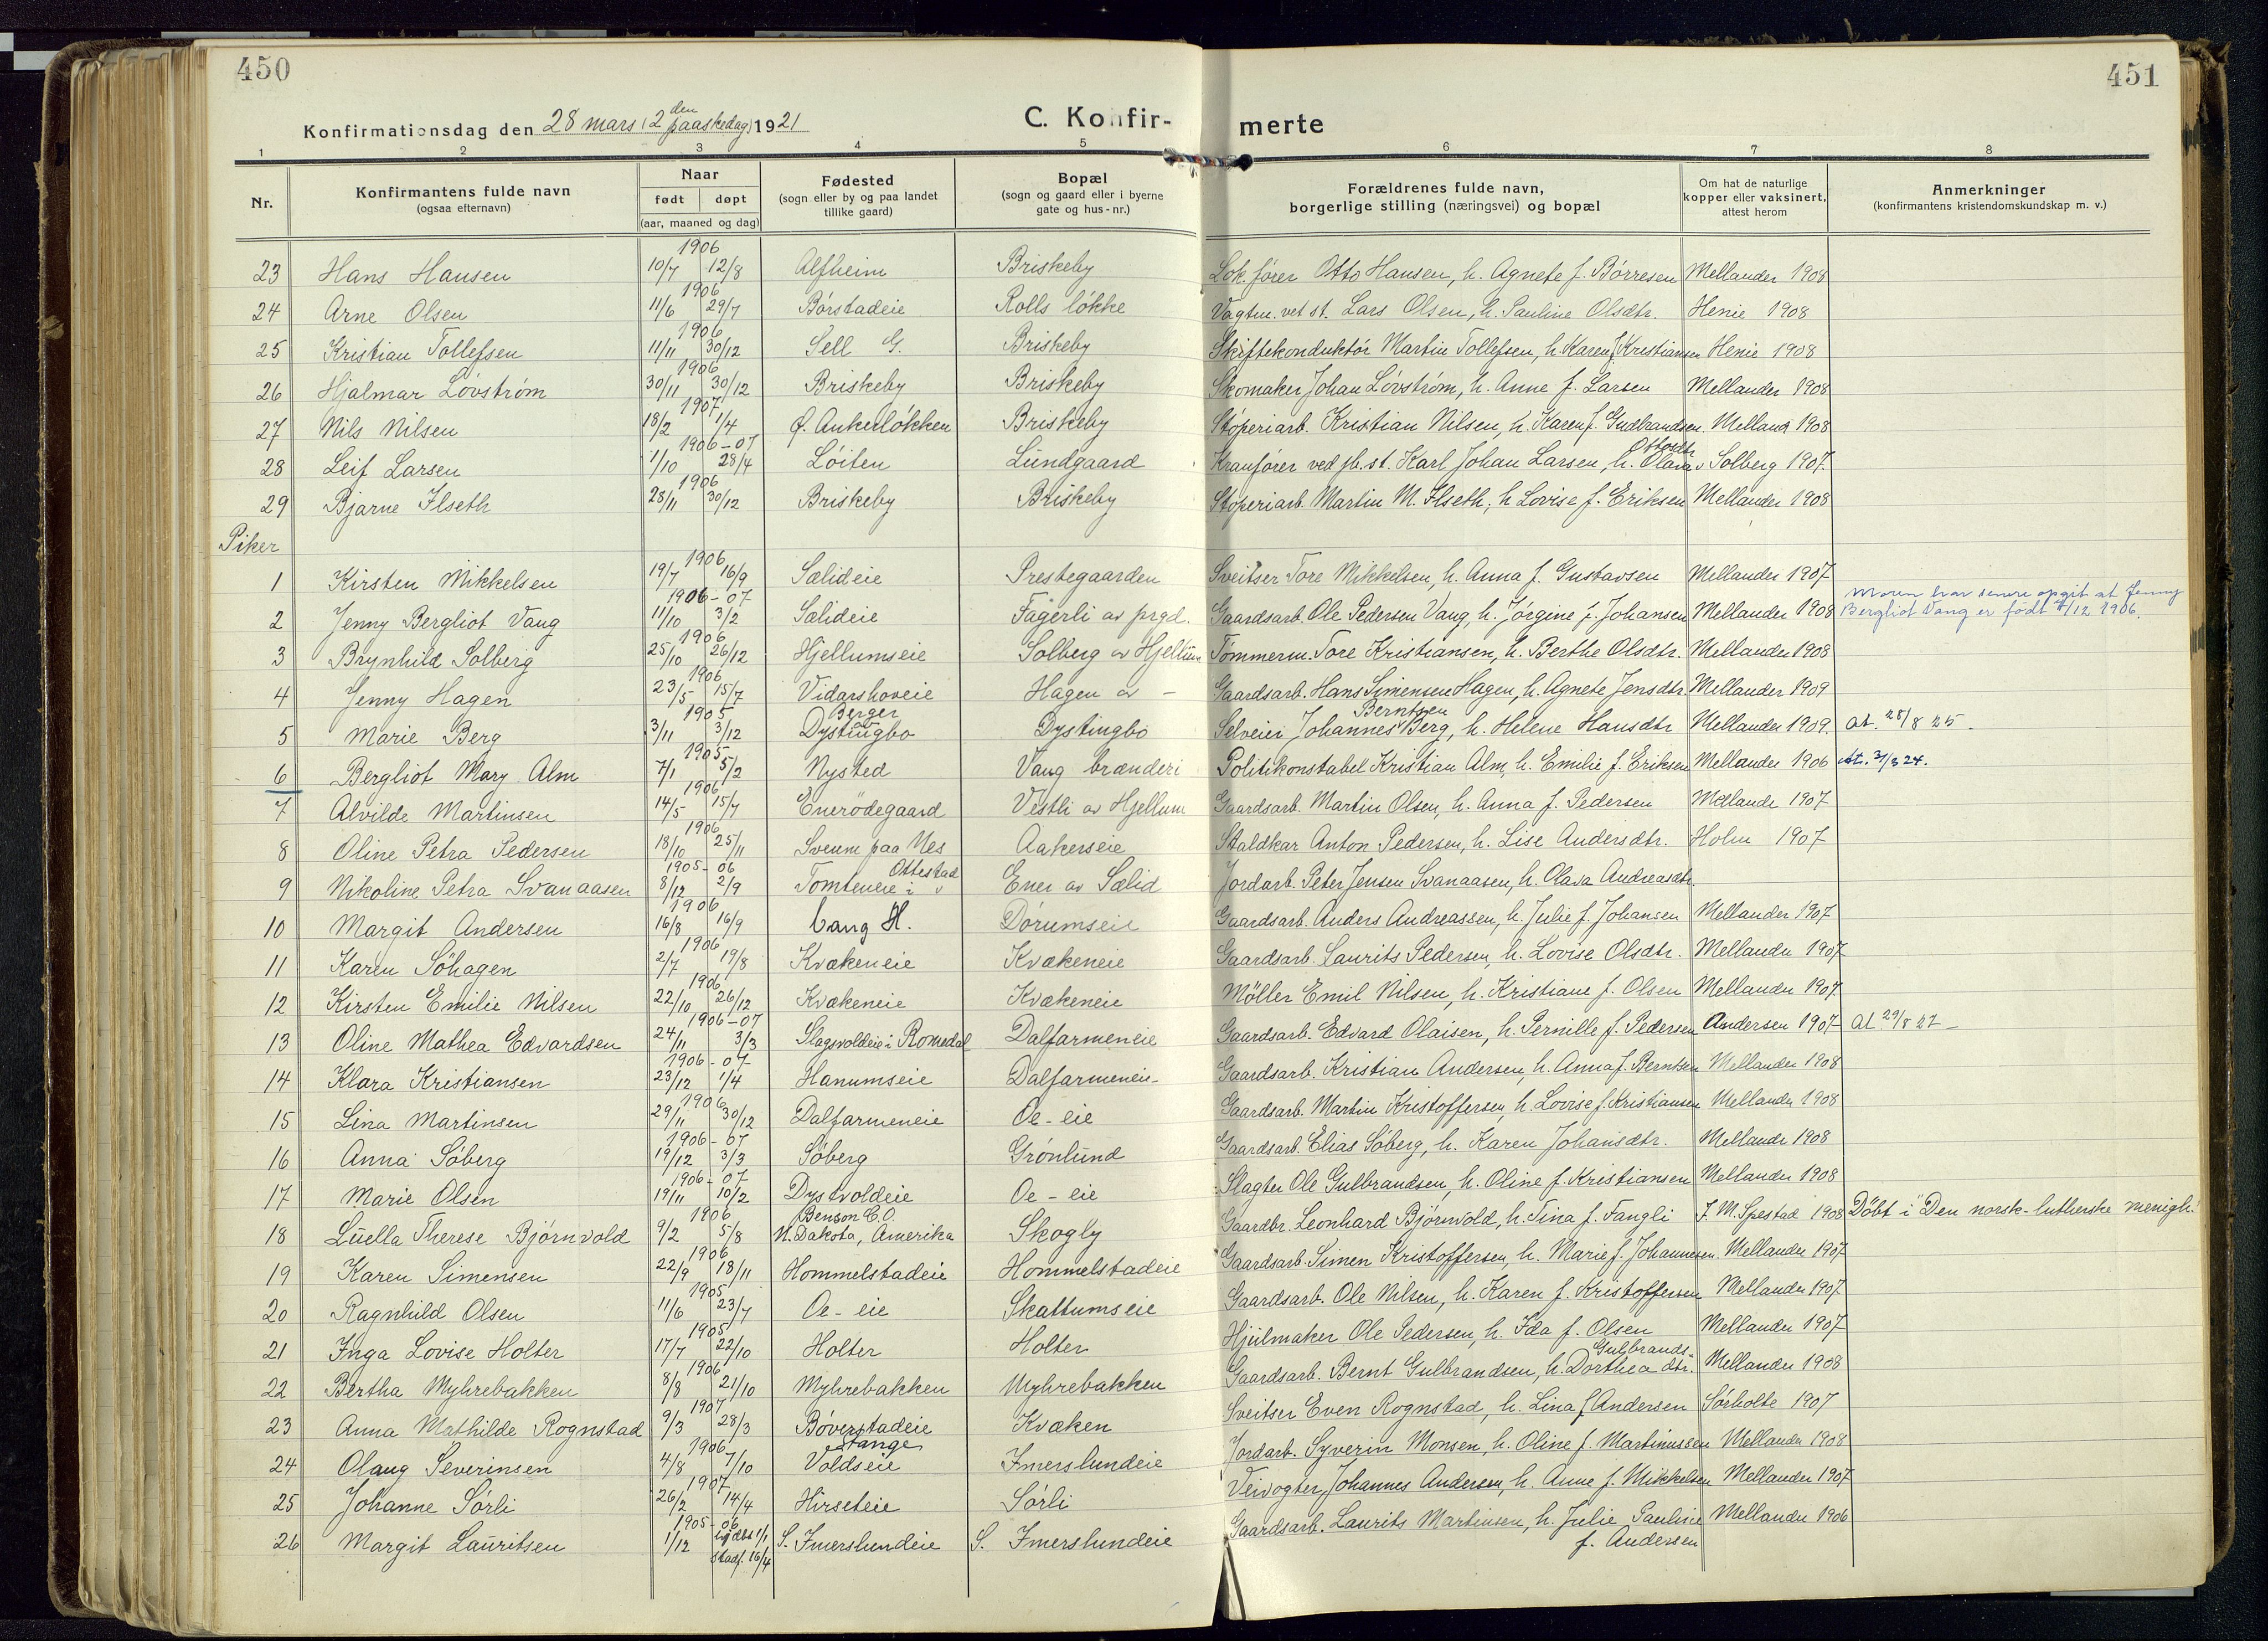 450
451
Konfirmationsdag den 28 mars (2den paaskedag) 1921
C. Konfir-
merte
1 2 3 4 5 6 7 8
Nr. Konfirmantens fulde navn (ogsaa efternavn) Naar født døpt (aar, maaned og dag) Fødested (sogn eller by og paa landet tillike gaard) Bopæl (sogn og gaard eller i byerne gate og hus-nr.) Forældrenes fulde navn, borgerlige stilling (næringsvei) og bopæl Om hat de naturlige kopper eller vaksinert, attest herom Anmerkninger (konfirmantens kristendomskundskap m. v.)
23 Hans Hansen 1906 10/7 12/8 Alfheim Briskeby Lok.fører Otto Hansen, h. Agnete f. Børresen Mellander 1908
24 Arne Olsen 1906 11/6 29/7 Børstadeie Rolls løkke Vagtm. vet st. Lars Olsen, h. Pauline Olsdtr. Henie 1908
25 Kristian Tollefsen 1906 11/11 30/12 Sell G. Briskeby Skiftekonduktør Martin Tollefsen, h. Karen f. Kristiansen Henie 1908
26 Hjalmar Løvstrøm 1906 30/11 30/12 Briskeby Briskeby Skomaker Johan Løvstrøm, h. Anne f. Larsen Mellander 1908
27 Nils Nilsen 1907 18/2 1/4 Ø. Ankerløkken Briskeby Støperiarb. Kristian Nilsen, h. Karen f. Gudbrandsen Melland 1908
28 Leif Larsen 1906-07 1/10 28/4 Løiten Lundgaard Kranfører ved jb. st. Karl Johan Larsen, h. Olava Ottosdtr Solberg 1907.
29 Bjarne Ilseth 1906 28/11 30/12 Briskeby Briskeby Støperiarb. Martin M. Ilseth, h Lovise f. Eriksen Mellander 1908
Piker
1 Kirsten Mikkelsen 1906 19/7 16/9 Sælideie Prestegaarden Sveitser Tore Mikkelsen, h. Anna f. Gustavsen Mellander 1907
2 Jenny Bergliot Vang 1906-07 11/10 3/2 Sælideie Fagerli av prgd. Gaardsarb. Ole Pedersen Vang, h. Jørgine f. Johansen Mellander 1908 Moren har senere opgit at Jenny Bergliot Vang er født /12 1906.
3 Brynhild Solberg 1906 25/10 26/12 Hjellumseie Solberg av Hjellum Tømmerm. Tore Kristiansen, h. Berthe Olsdtr. Mellander 1908
4 Jenny Hagen 1906 23/5 15/7 Vidarshoveie Hagen av - Gaardsarb. Hans Simensen Hagen, h. Agnete Jensdtr. Mellander 1909
5 Marie Berg 1905 3/11 3/12 Berger av Dystingbo Dystingbo Selveier Johannes Berntsen Berg, h. Helene Hansdtr Mellander 1909. at. 28/8 25 -
6 Bergliot Mary Alm 1905 7/1 5/2 Nysted Vang brænderi Politikonstabel Kristian Alm, h. Emilie f. Eriksen Mellander 1906 At. 3/3 24.
7 Alvilde Martinsen 1906 14/5 15/7 Enerødegaard Vestli av Hjellum Gaardsarb. Martin Olsen, h. Anna f. Pedersen Mellande 1907
8 Oline Petra Pedersen 1906 18/10 25/11 Svenne paa Nes Aakerseie Staldkar Anton Pedersen, h. Lise Andersdtr. Holm 1907
9 Nikoline Petra Svanaasen 1905-06 8/12 2/9 Tomteneie i Ottestad Ener av Sælid Jordarb. Peter Jensen Svanaasen, h. Olava Andreasdtr.
10 Margit Andersen 1906 16/8 16/9 Vang H. Dørumseie Gaardsarb. Anders Andreassen, h. Julie f. Johansen Mellander 1907
11 Karen Søhagen 1906 2/7 19/8 Kvækeneie Kvækeneie Gaardsarb. Laurits Pedersen, h. Lovise Olsdtr. Mellander 1907
12 Kirsten Emilie Nilsen 1906 22/10 26/12 Kvækeneie Kvækeneie Møller Emil Nilsen, h. Kristiane f. Olsen Mellander 1907
13 Oline Mathea Edvardsen 1906-07 24/11 3/3 Slagsvoldeie i Romedal Dalfarmeneie Gaardsarb. Edvard Olaisen, h. Pernille f. Pedersen Andersen 1907 at 29/8 27 -
14 Klara Kristiansen 1906-07 23/12 1/4 Hanumseie Dalfarmeneie Gaardsarb. Kristian Andersen, h. Anna f. Berntsen Mellander 1908
15 Lina Martinsen 1906 29/11 30/12 Dalfarmeneie Oe-eie Gaardsarb. Martin Kristoffersen, h. Lovise f. Kristiansen Mellander 1908
16 Anna Søberg 1906-07 19/12 3/3 Søberg Grønlund Gaardsarb. Elias Søberg, h. Karen Johansdtr. Mellande 1908
17 Marie Olsen 1906-07 19/11 10/2 Dystvoldeie Oe-eie Slagter Ole Gulbrandsen, h. Oline f. Kristiansen Mellander 1908
18 Luella Therese Bjørnvold 1906 9/2 5/8 Benson C.O. N. Dakota, Amerika Skogly Gaardbr. Leonhard Bjørnvold, h. Tina f. Fangli J. M. Spestad 1908 Døbt i Den norsk-lutherske menigh.
19 Karen Simensen 1906 22/9 18/11 Hommelstadeie Hommelstadeie Gaardsarb. Simen Kristoffersen, h. Marie f. Johannesen. Mellander 1907
20 Ragnhild Olsen 1905 11/6 23/7 Oe-eie Skattumseie Gaardsarb. Ole Nilsen, h. Karen f. Kristoffersen Mellander 1907
21 Inga Lovise Holter 1905 17/7 22/10 Holter Holter Hjulmaker Ole Pedersen, h. Ida f. Olsen Mellander 1907
22 Bertha Myhrebakken 1906 8/8 21/10 Myhrebakken Myhrebakken Gaardsarb. Bernt Gulbrandsen, h. Dorthea Gulbrands-dtr. Mellander 1908
23 Anna Mathilde Rognstad 1907 9/3 28/3 Bøverstadeie Kvæken Sveitser Even Rognstad, h. Lina f. Andersen Sørholte 1907
24 Olaug Severinsen 1906 4/8 7/10 Stange Voldseie Imerslundeie Jordarb. Syverin Monsen, h. Oline f. Martinussen Mellander 1908
25 Johanne Sørli 1907 26/2 14/4 Hirseteie Sørli Veivogter, Johannes Andersen, h. Anne f. Mikkelsen Mellander 1907
26 Margit Lauritsen 1905-06 1/12 hjdbt 1/1 stadf. 16/4 S. Imerslundeie S. Imerslundeie Gaardsarb. Laurits Martinsen, h. Julie Pauline f. Andersen Mellander 1906